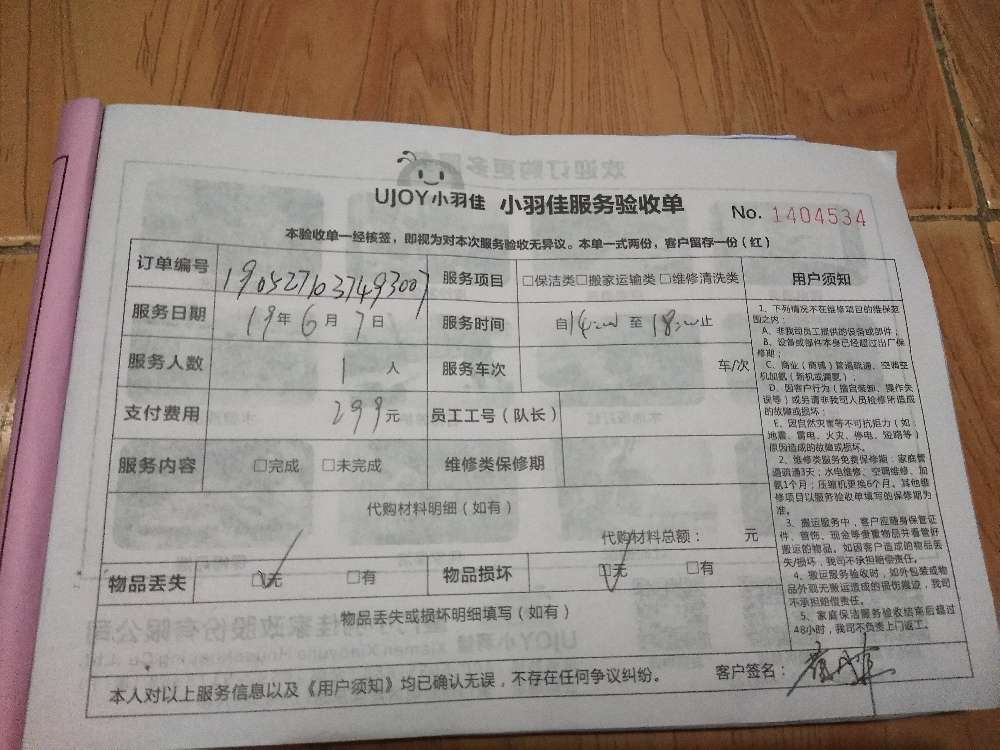 UJOY小羽佳 小羽佳服务验收单 No. 1404534
本验收单一经核签，即视为对本次服务验收无异议。本单一式两份，客户留存一份（红）
订单编号 1905271037493007 服务项目 □保洁类□搬家运输类□维修清洗类
服务日期 19年6月7日 服务时间 自14:00至18:00止
服务人数 1人 服务车次 车/次
支付费用 299元 员工工号（队长）
服务内容 □完成 □未完成 维修类保修期
代购材料明细（如有）
代购材料总额： 元
物品丢失 ☑无 □有 物品损坏 ☑无 □有
物品丢失或损坏明细填写（如有）
本人对以上服务信息以及《用户须知》均已确认无误，不存在任何争议纠纷。
客户签名：
用户须知
1、下列情况不在维修项目的维保范
围之内：
A、非我司员工提供的设备或部件；
B、设备或部件本身已经超过出厂保
修期；
C、商业（商铺）管道疏通、空调空
机加氨（新机或漏氨）
D、因客户行为（擅自装卸、操作失
误等）或另请非我司人员检修所造成
的故障或损坏；
E、因自然灾害等不可抗拒力（如：
地震、雷电、火灾、停电、短路等）
原因造成的故障或损坏。
2、维修类服务免费保修期：家庭管
道疏通3天；水电维修、空调维修、加
氨1个月；压缩机更换6个月。其他维
修项目以服务验收单填写的保修期为
准。
3、搬运服务中，客户应随身保管证
件、首饰、现金等贵重物品并看管好
搬运的物品。如因客户造成的物品丢
失/损坏，我司不承担赔偿责任。
4、搬运服务验收时，如外包装或物
品外观无搬运造成的损伤痕迹，我司
不承担赔偿责任。
5、家庭保洁服务验收结束后超过
48小时，我司不负责上门返工。